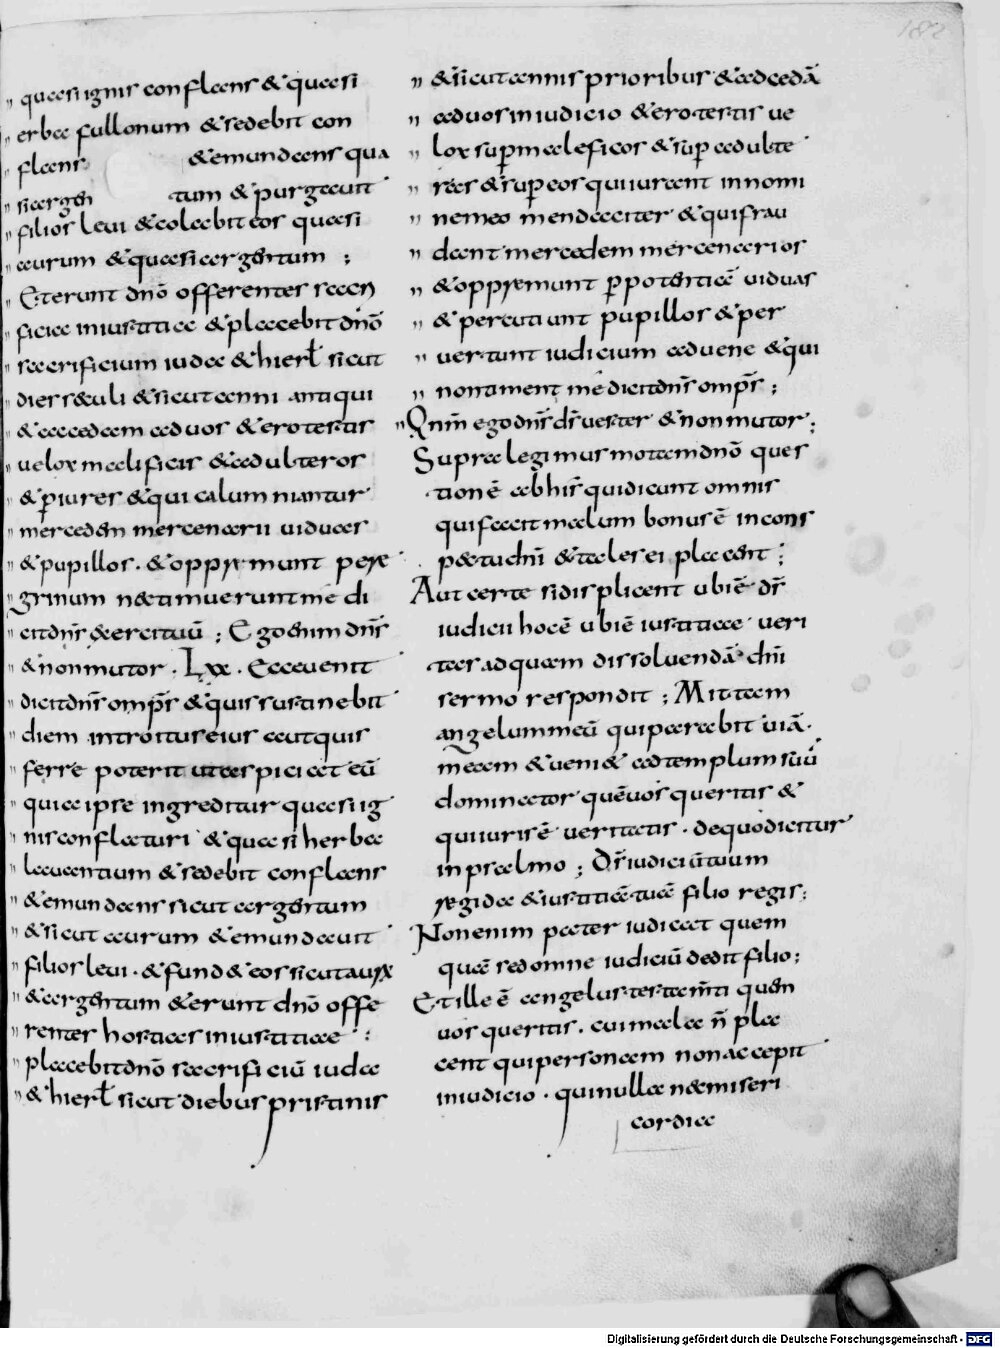 182
quasi ignis conflans & quasi
erba fullonum & sedebit con
flans & emundans qua
si argen tum & purgauit
filios leui & colabit eos quasi
aurum & quasi argentum ;
Et erunt dño offerentes sacri
ficia in iustitia & placebit dño
sacrificium iuda & hierł sicut
dies sæculi & sicut anni antiqui
& accedam ad uos & ero testis
uelox maleficis & adulteros
& piures & qui calumniantur
mercedem mercenarii uiduas
& pupillos . & opprimunt pere
grinum nec timuerunt me di
cit dñs exercituũ ; Ego enim dñs
& non mutor . Lxx . Ecce uenit
dicit dñs omps & quis sustinebit
diem introitus eius aut quis
ferre poterit ut aspiciat eũ
quia ipse ingreditur quasi ig
nis conflaturi & quasi herba
lauantium & sedebit conflans
& emundans sicut argentum
& sicut aurum & emundauit
filios leui . & fund& eos sicut aurũ
& argentum & erunt dño offe
rentes hostias in iustitia :
placebit dño sacrificiũ iuda
& hierł sicut diebus pristinis
& sicut annis prioribus & accedã
ad uos in iudicio & ero testis ue
lox sup maleficos & sup adulte
ras & sup eos qui iurant in nomi
ne meo mendaciter & qui frau
dant mercedem mercenarios
& opprimunt p potentiã uiduas
& percutiunt pupillos & per
uertunt iudicium aduene & qui
non timent me dicit dñs omps ;
Qnm ego dñs ds uester & non mutor ;
Supra legimus motam dño ques
tionẽ ab his qui dicunt omnis
qui facit malum bonus ẽ in cons
pectu dñi & tales ei placent ;
Aut certe si displicent ubi ẽ ds
iudicii hoc ẽ ubi ẽ iustitiae ueri
tas ad quam dissoluendã dñi
sermo respondit ; Mittam
angelum meũ qui parabit uiã
meam & ueni& ad templum suũ
dominator quẽ uos queritis &
qui iuris ẽ ueritatis . de quo dicitur
in psalmo ; Ds iudiciũ tuum
regi da & iustitiã tuã filio regis ;
Non enim pater iudicat quem
quã sed omne iudiciũ dedit filio ;
Et ille ẽ angelus testamti quem
uos queritis . cui mala ñ pla
cent qui personam non accepit
in iudicio . qui nulla nec miseri
cordia
Digitalisierung gefördert durch die Deutsche Forschungsgemeinschaft - DFG